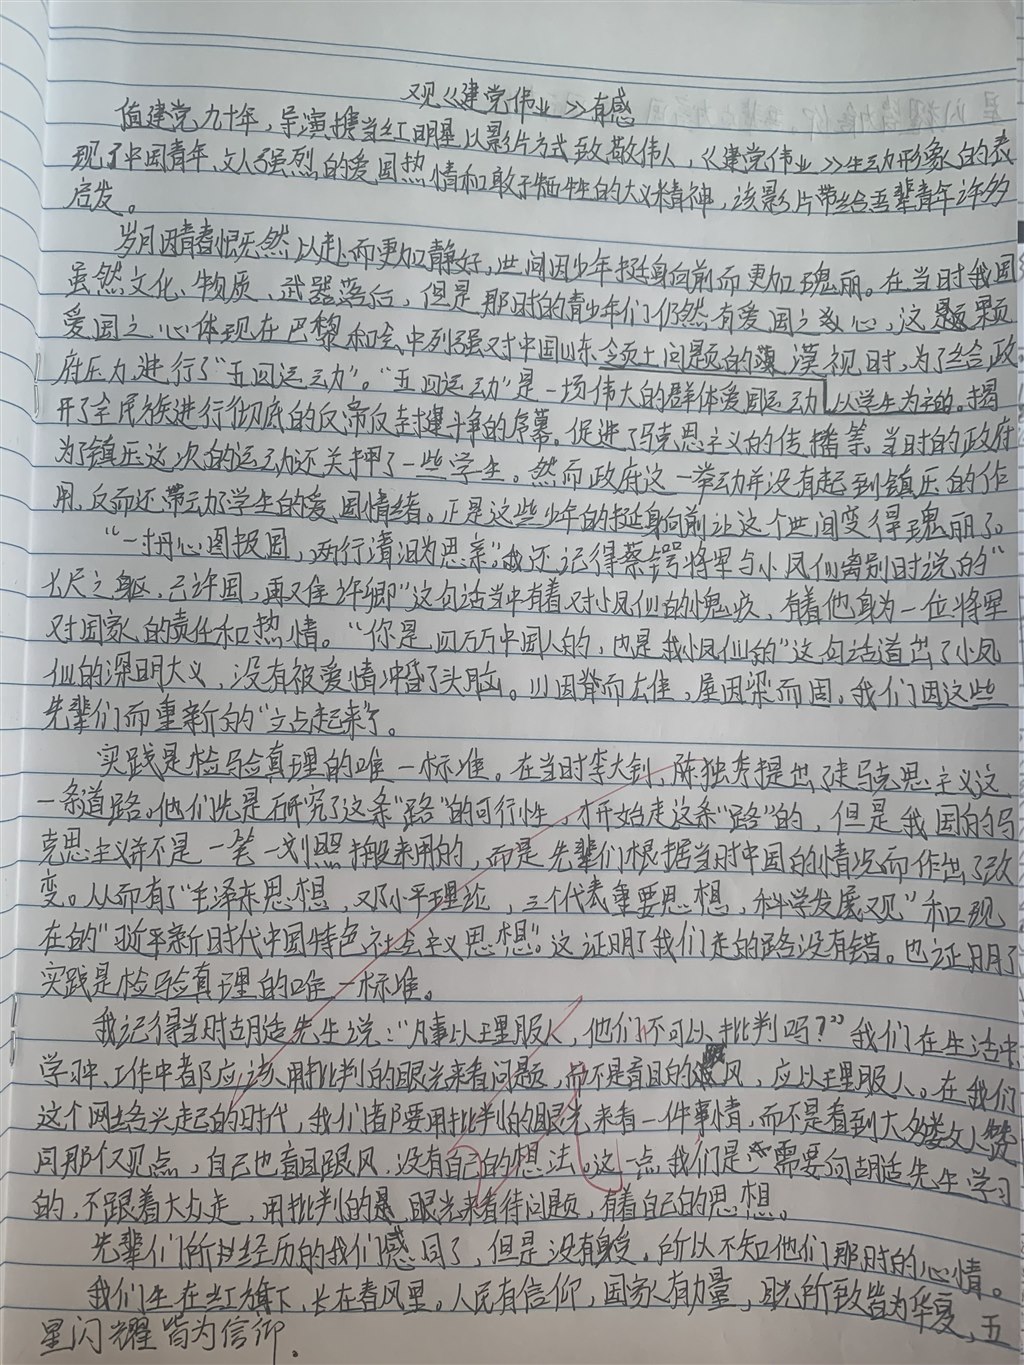 观《建党伟业》有感
值建党九十年，导演携当红明星以影片方式致敬伟人，《建党伟业》生动形象的表
现了中国青年、文人强烈的爱国热情和敢于牺牲的大义精神，该影片带给吾辈青年许多
启发。
岁月因青春慨然以赴而更加静好，世间因少年挺身向前而更加瑰丽。在当时我国
虽然文化、物质、武器落后，但是那时的青少年们仍然有爱国之心，这颗
爱国之心体现在巴黎和会中列强对中国山东领土问题的漠视时，为了给政
府压力，进行了“五四运动”。“五四运动”是一场伟大的群体爱国运动，以学生为主的。揭
开了全民族进行彻底的反帝反封建斗争的序幕。促进了马克思主义的传播等。当时的政府
为了镇压这次的运动还关押了一些学生。然而政府这一举动并没有起到镇压的作
用，反而还带动了学生的爱国情绪。正是这些少年的挺身向前让这个世间变得瑰丽了。
“一寸丹心图报国，两行清泪为思亲”，我还记得蔡锷将军与小凤仙离别时说的“
七尺之躯，已许国，再难许卿”这句话当中有着对小凤仙的愧疚，有着他身为一位将军
对国家的责任和热情。“你是四万万中国人的，也是我小凤仙的”这句话道出了小凤
仙的深明大义，没有被爱情冲昏了头脑。川因脊而雄，屋因梁而固。我们因这些
先辈们而重新的“立点起来”了。
实践是检验真理的唯一标准。在当时李大钊，陈独秀提出了走马克思主义这
一条道路。他们先是研究了这条“路”的可行性，才开始走这条“路”的，但是我国的马
克思主义并不是一笔一划照搬来用的，而是先辈们根据当时中国的情况而作出了改
变。从而有了“毛泽东思想，邓小平理论，三个代表重要思想，科学发展观”和现
在的“习近平新时代中国特色社会主义思想”。这证明了我们走的路没有错。也证明了
实践是检验真理的唯一标准。
我记得当时胡适先生说：“凡事以理服人，他们不可以批判吗？”我们在生活中、
学习中、工作中都应该用批判的眼光来看问题，而不是盲目的跟风，应以理服人。在我们
这个网络兴起的时代，我们都要用批判的眼光来看一件事情，而不是看到大多数人赞
同那个观点，自己也盲目跟风，没有自己的想法。这一点我们是需要向胡适先生学习
的，不跟着大众走，用批判的眼光来看待问题，有着自己的思想。
先辈们所经历的我们感同了，但是没有身受，所以不知他们那时的心情。
我们生在红旗下，长在春风里。人民有信仰，国家有力量，目光所致皆为华夏，五
星闪耀皆为信仰。